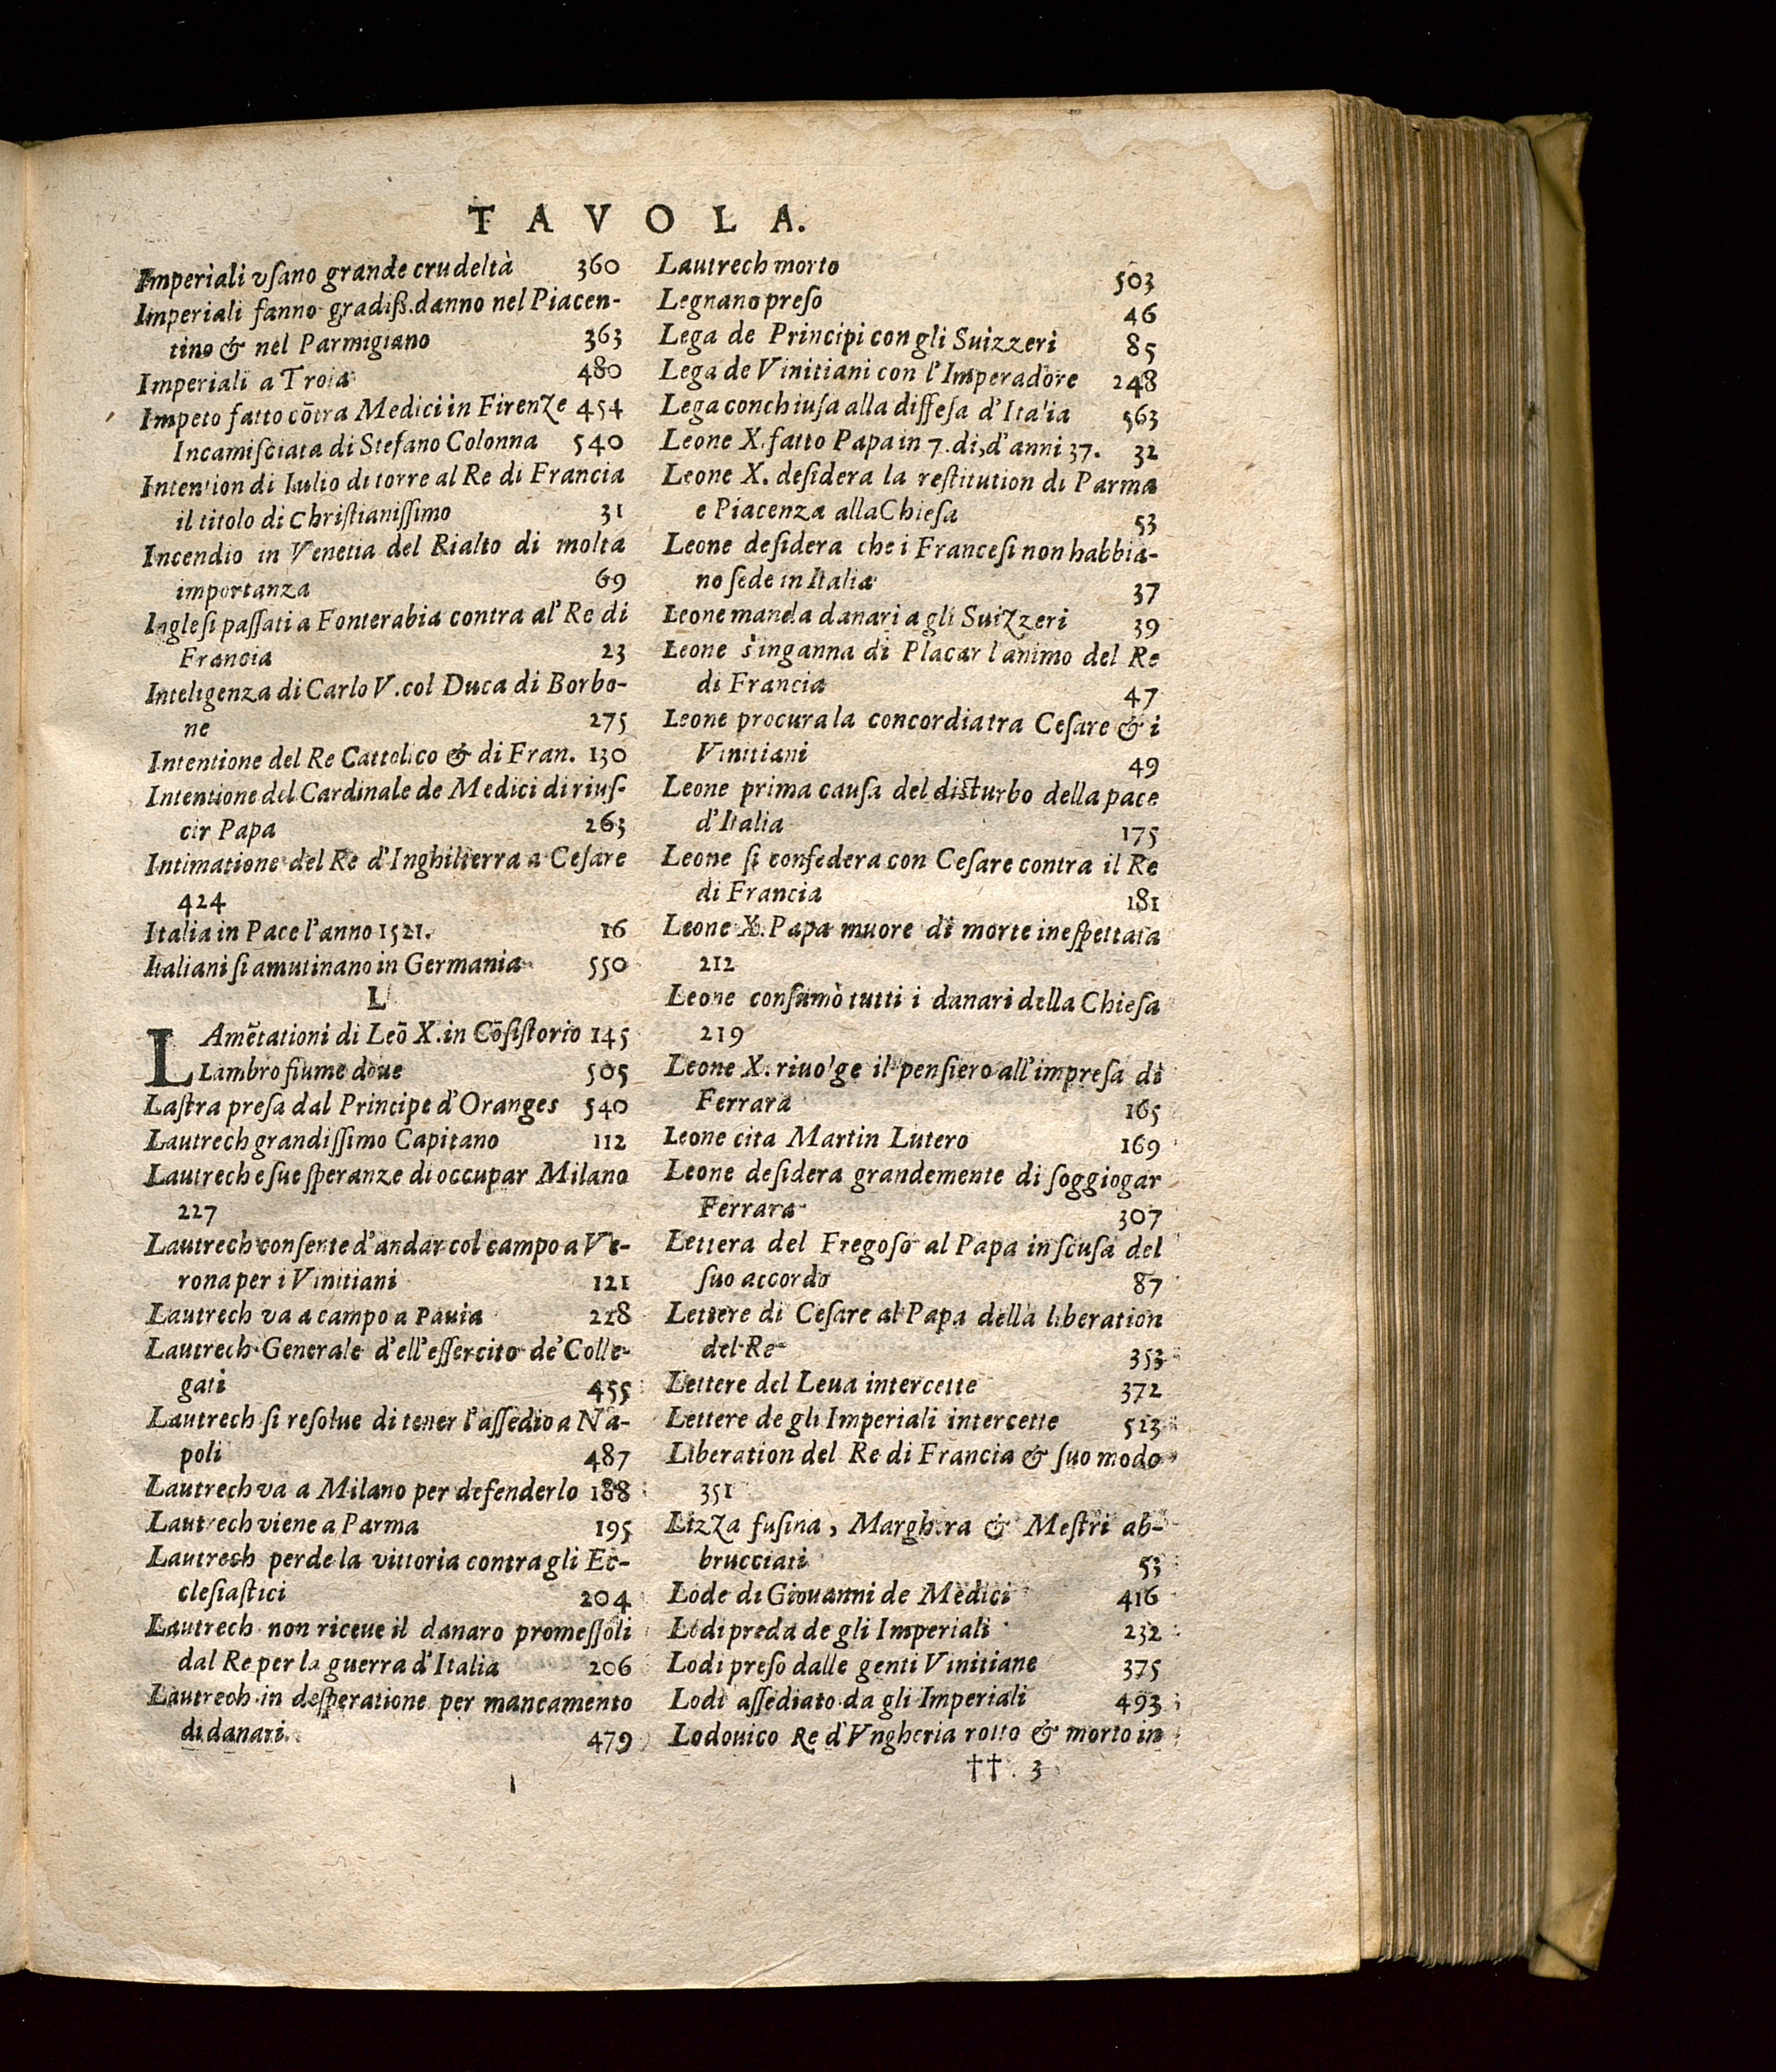 TAVOLA.
Imperiali vſano grande crudeltà 360
Imperiali fanno gradiß. danno nel Piacen-
tino & nel Parmigiano 363
Imperiali a Troia 480
Impeto fatto cõtra Medici in Firenze 454
Incamiſciata di Stefano Colonna 540
Intention di Iulio di torre al Re di Francia
il titolo di Chriſtianiſſimo 31
Incendio in Venetia del Rialto di molta
importanza 69
Ingleſi paſſati a Fonterabia contra al' Re di
Francia 23
Inteligenza di Carlo V. col Duca di Borbo-
ne 275
Intentione del Re Cattolico & di Fran. 130
Intentione del Cardinale de Medici di riuſ-
cir Papa 263
Intimatione del Re d'Inghilterra a Ceſare
424
Italia in Pace l'anno 1521. 16
Italiani ſi amutinano in Germania 550
L
LAmẽtationi di Leõ X. in Cõſiſtorio 145
Lambro fiume doue 505
Laſtra preſa dal Principe d'Oranges 540
Lautrech grandiſſimo Capitano 112
Lautrech e ſue ſperanze di occupar Milano
227
Lautrech conſente d'andar col campo a Ve-
rona per i Vinitiani 121
Lautrech va a campo a Pauia 228
Lautrech Generale d'ell'eſſercito de' Colle-
gati 455
Lautrech ſi reſolue di tener l'aſſedio a Na-
poli 487
Lautrech va a Milano per defenderlo 188
Lautrech viene a Parma 195
Lautrech perde la vittoria contra gli Ec-
cleſiaſtici 204
Lautrech non riceue il danaro promeſſoli
dal Re per la guerra d'Italia 206
Lautrech in deſperatione per mancamento
di danari. 479
Lautrech morto 503
Legnano preſo 46
Lega de Principi con gli Suizzeri 85
Lega de Vinitiani con l'Imperadore 248
Lega conchiuſa alla diffeſa d'Italia 563
Leone X. fatto Papa in 7. di, d'anni 37. 32
Leone X. deſidera la reſtitution di Parma
e Piacenza alla Chieſa 53
Leone deſidera che i Franceſi non habbia-
no ſede in Italia 37
Leone manda danari a gli Suizzeri 39
Leone s'inganna di Placar l'animo del Re
di Francia 47
Leone procura la concordia tra Ceſare & i
Vinitiani 49
Leone prima cauſa del diſturbo della pace
d'Italia 175
Leone ſi confedera con Ceſare contra il Re
di Francia 181
Leone X. Papa muore di morte ineſpettata
212
Leone conſumò tutti i danari della Chieſa
219
Leone X. riuolge il penſiero all'impreſa di
Ferrara 165
Leone cita Martin Lutero 169
Leone deſidera grandemente di ſoggiogar
Ferrara 307
Lettera del Fregoſo al Papa in ſcuſa del
ſuo accordo 87
Lettere di Ceſare al Papa della liberation
del Re 353
Lettere del Leua intercette 372
Lettere de gli Imperiali intercette 513
Liberation del Re di Francia & ſuo modo
351
Lizza fuſina, Marghera & Meſtri ab-
brucciati 53
Lode di Giouanni de Medici 416
Lodi preda de gli Imperiali 232
Lodi preſo dalle genti Vinitiane 375
Lodi aſſediato da gli Imperiali 493
Lodouico Re d'Vngheria rotto & morto in
†† 3